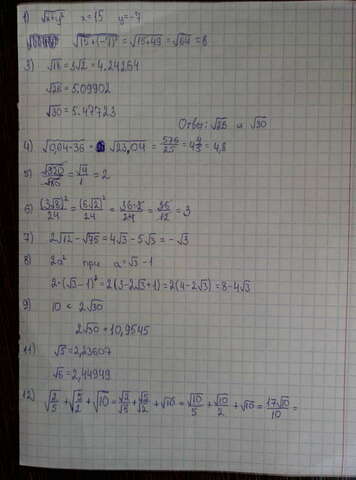 1) √x+y² x=15 y=-7
√15+(-7)² = √15+49 = √64 = 8
3) √18 = 3√2 = 4.24264
√26 = 5.09902
√30 = 5.47723
Ответ: √26 и √30
4) √0,04·36 = √23,04 = 576/25 = 4 4/5 = 4,8
5) = √4/1 = 2
6) (3√8)²/24 = (6√2)²/24 = 36·2/24 = 36/12 = 3
7) 2√12 - √75 = 4√3 - 5√3 = -√3
8) 2a² при a=√3-1
2·(√3-1)² = 2(3-2√3+1) = 2(4-2√3) = 8-4√3
9) 10 < 2√30
2√30 = 10,9545
11) √5 = 2,23607
√6 = 2,44949
12) √2/5 + √5/2 + √10 = √2/√5 + √5/√2 + √10 = √10/5 + √10/2 + √10 = 17√10/10 =